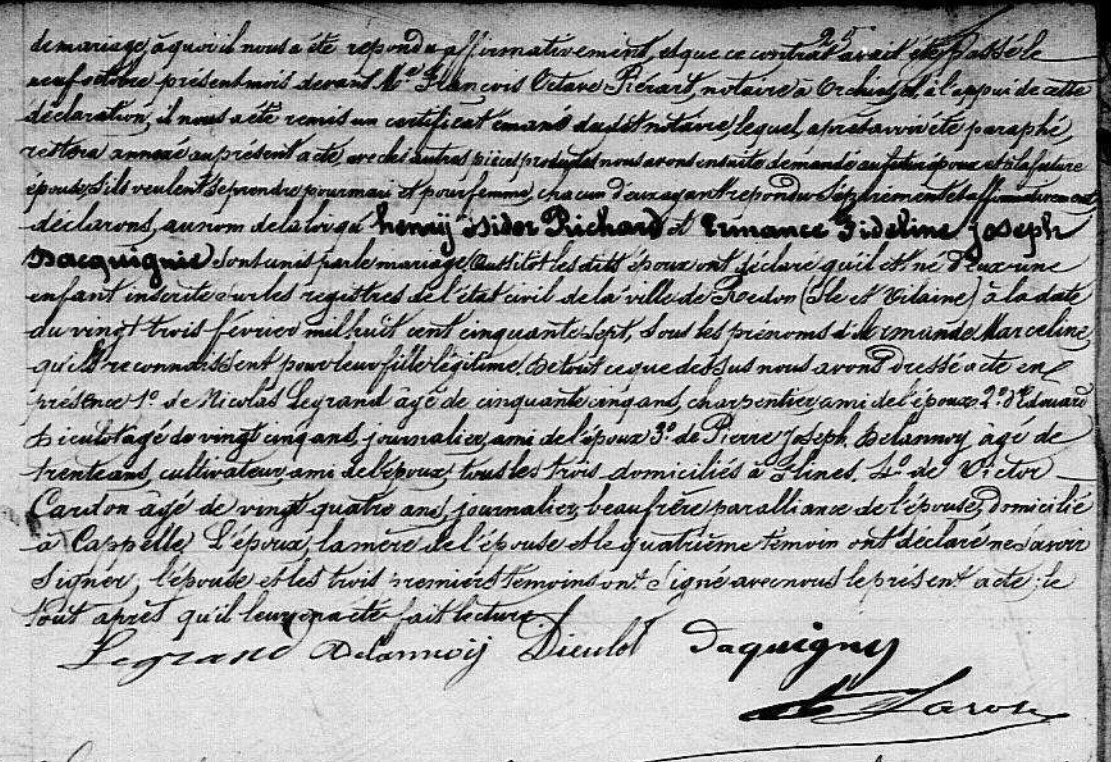 25
de mariage, à quoi il nous a été repondu affirmativement, et que ce contrat avait été passé le
neuf octobre présent mois devant Me François Octave Piérart, notaire à Orchies, et à l'appui de cette
déclaration, il nous a été remis un certificat émané dudit notaire, lequel, après avoir été paraphé,
restera annexé au présent acte avec les autres pièces produites nous avons ensuite demandé au futur époux et à la future
épouse, s'ils veulent se prendre pour mari et pour femme, chacun d'eux ayant répondu séparément et affirmativement
déclarons, au nom de la loi qu' henry isidor Richard et Ermance Fideline Joseph
Dacquignie sont unis par le mariage. Aussitôt les dits époux ont déclaré qu'il est né d'eux une
enfant inscrite sur les registres de l'état civil de la ville de Redon (Ile et Vilaine) à la date
du vingt trois février mil huit cent cinquante sept, sous les prénoms d'Armande Marceline,
qu'ils reconnaissent pour leur fille légitime. De tout ce que dessus nous avons dressé acte en
présence 1º de Nicolas Legrand âgé de cinquante cinq ans, charpentier, ami de l'époux 2º d'Edouard
Dieulot âgé de vingt cinq ans, journalier, ami de l'époux 3º de Pierre Joseph Delannoy âgé de
trente ans, cultivateur, ami de l'époux, tous les trois domiciliés à Flines, 4º de Victor
Cardon âgé de vingt quatre ans, journalier, beau frère par alliance de l'épouse, domicilié
à Cappelle. L'époux, la mère de l'épouse et le quatrième témoin ont déclaré ne savoir
signer, l'épouse et les trois premiers témoins ont signé avec nous le présent acte, le
tout après qu'il leur en a été fait lecture
Legrand Delannoij Dieulot Daquigny